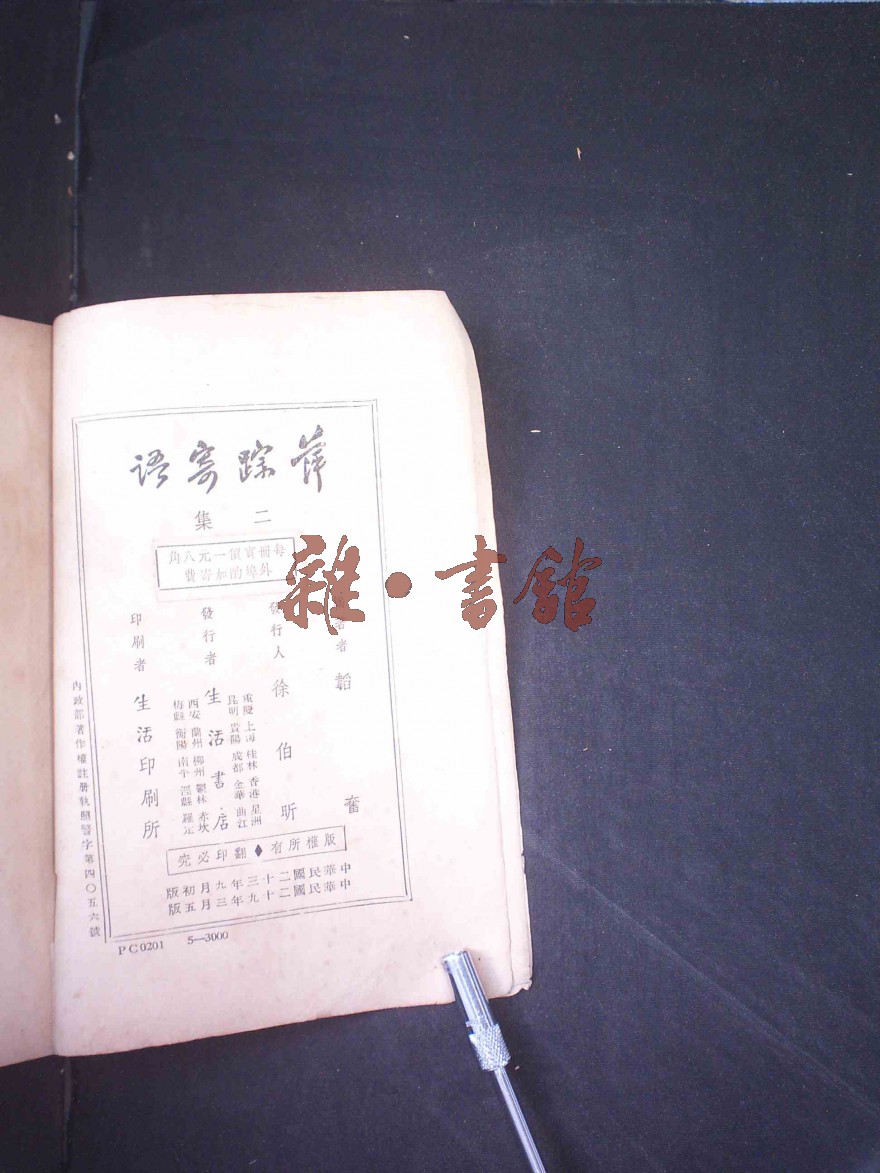 萍踪寄語
二集
每冊實價一元八角
外埠酌加寄費
著者 韜奮
發行人 徐伯昕
發行者 生活書店
重慶 上海 桂林 香港 星洲
昆明 貴陽 成都 金華 曲江
西安 蘭州 柳州 鬱林 赤坎
梅縣 衡陽 南平 涇縣 羅定
印刷者 生活印刷所
版權所有♦翻印必究
中華民國二十三年九月初版
中華民國二十九年三月五版
內政部著作權註册執照警字第四〇五六號
PC0201 5—3000
雜·書館